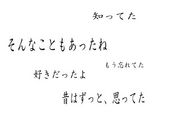 知ってた
そんなこともあったね
もう忘れてた
好きだったよ
昔はずっと、思ってた